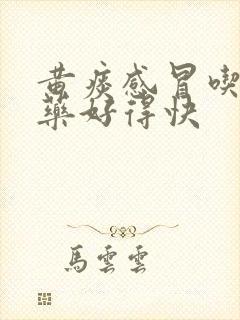 黄痰感冒喫
藥好得快
馬雲雲